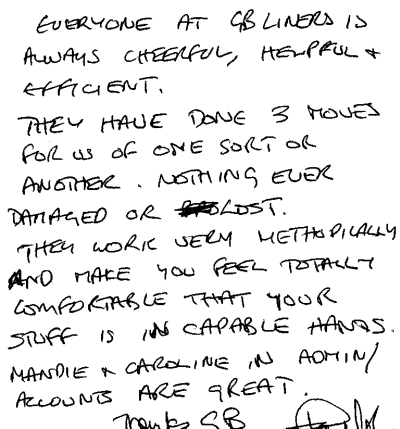 EVERYONE AT GB LINERS IS
ALWAYS CHEERFUL, HELPFUL +
EFFICIENT.
THEY HAVE DONE 3 MOVES
FOR US OF ONE SORT OR
ANOTHER. NOTHING EVER
DAMAGED OR LOST.
THEY WORK VERY METHODICALLY
AND MAKE YOU FEEL TOTALLY
COMFORTABLE THAT YOUR
STUFF IS IN CAPABLE HANDS.
MANDIE & CAROLINE IN ADMIN/
ACCOUNTS ARE GREAT.
Thanks GB